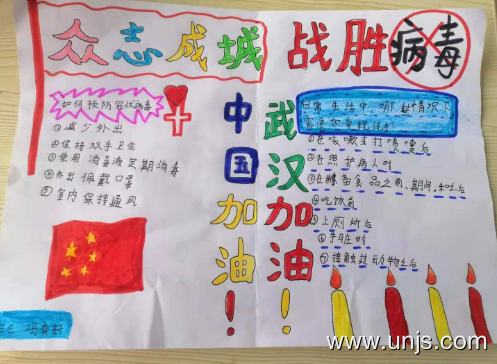 众志成城
战胜病毒
如何预防冠状病毒
①减少外出
②保持双手卫生
③使用消毒液定期消毒
④外出佩戴口罩
⑤室内保持通风
中国加油！
武汉加油！
日常生活中,哪些情况下
①在咳嗽或打喷嚏后
②在照护病人时
③在准备食品之前、期间和之后
④吃饭前
⑤上厕所后
⑥手脏时
⑦接触过动物之后
www.unjs.com